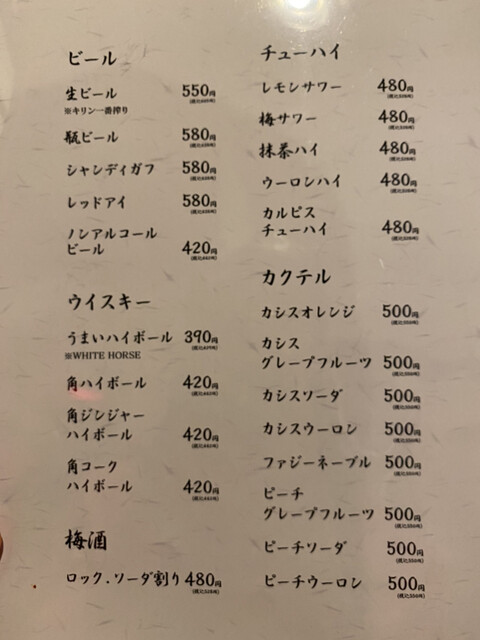 ビール
生ビール 550円
(税込605円)
※キリン一番搾り
瓶ビール 580円
(税込638円)
シャンディガフ 580円
(税込638円)
レッドアイ 580円
(税込638円)
ノンアルコール
ビール 420円
(税込462円)
ウイスキー
うまいハイボール 390円
(税込429円)
※WHITE HORSE
角ハイボール 420円
(税込462円)
角ジンジャー
ハイボール 420円
(税込462円)
角コーク
ハイボール 420円
(税込462円)
梅酒
ロック.ソーダ割り 480円
(税込528円)
チューハイ
レモンサワー 480円
(税込528円)
梅サワー 480円
(税込528円)
抹茶ハイ 480円
(税込528円)
ウーロンハイ 480円
(税込528円)
カルピス
チューハイ 480円
(税込528円)
カクテル
カシスオレンジ 500円
(税込550円)
カシス
グレープフルーツ 500円
(税込550円)
カシスソーダ 500円
(税込550円)
カシスウーロン 500円
(税込550円)
ファジーネーブル 500円
(税込550円)
ピーチ
グレープフルーツ 500円
(税込550円)
ピーチソーダ 500円
(税込550円)
ピーチウーロン 500円
(税込550円)